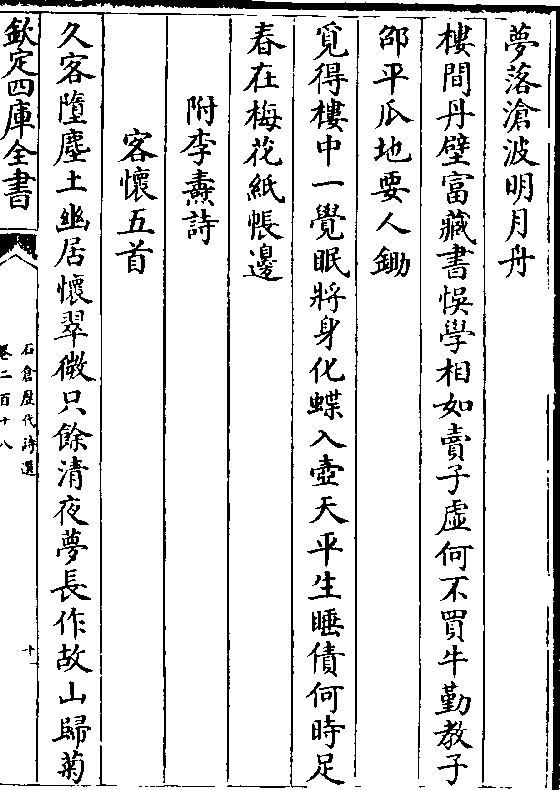 夢落滄波明月舟
樓間丹壁富藏書悞學相如賣子虛何不買牛勤教子
邵平瓜地要人鋤
覔得樓中一覺眠將身化蝶入壺天平生睡債何時足
春在梅花紙帳邊
附李燾詩
客懷五首
久客墮塵土幽居懷翠微只餘清夜夢長作故山歸菊
欽定四庫全書
石倉歷代詩選
卷二百十八
十一